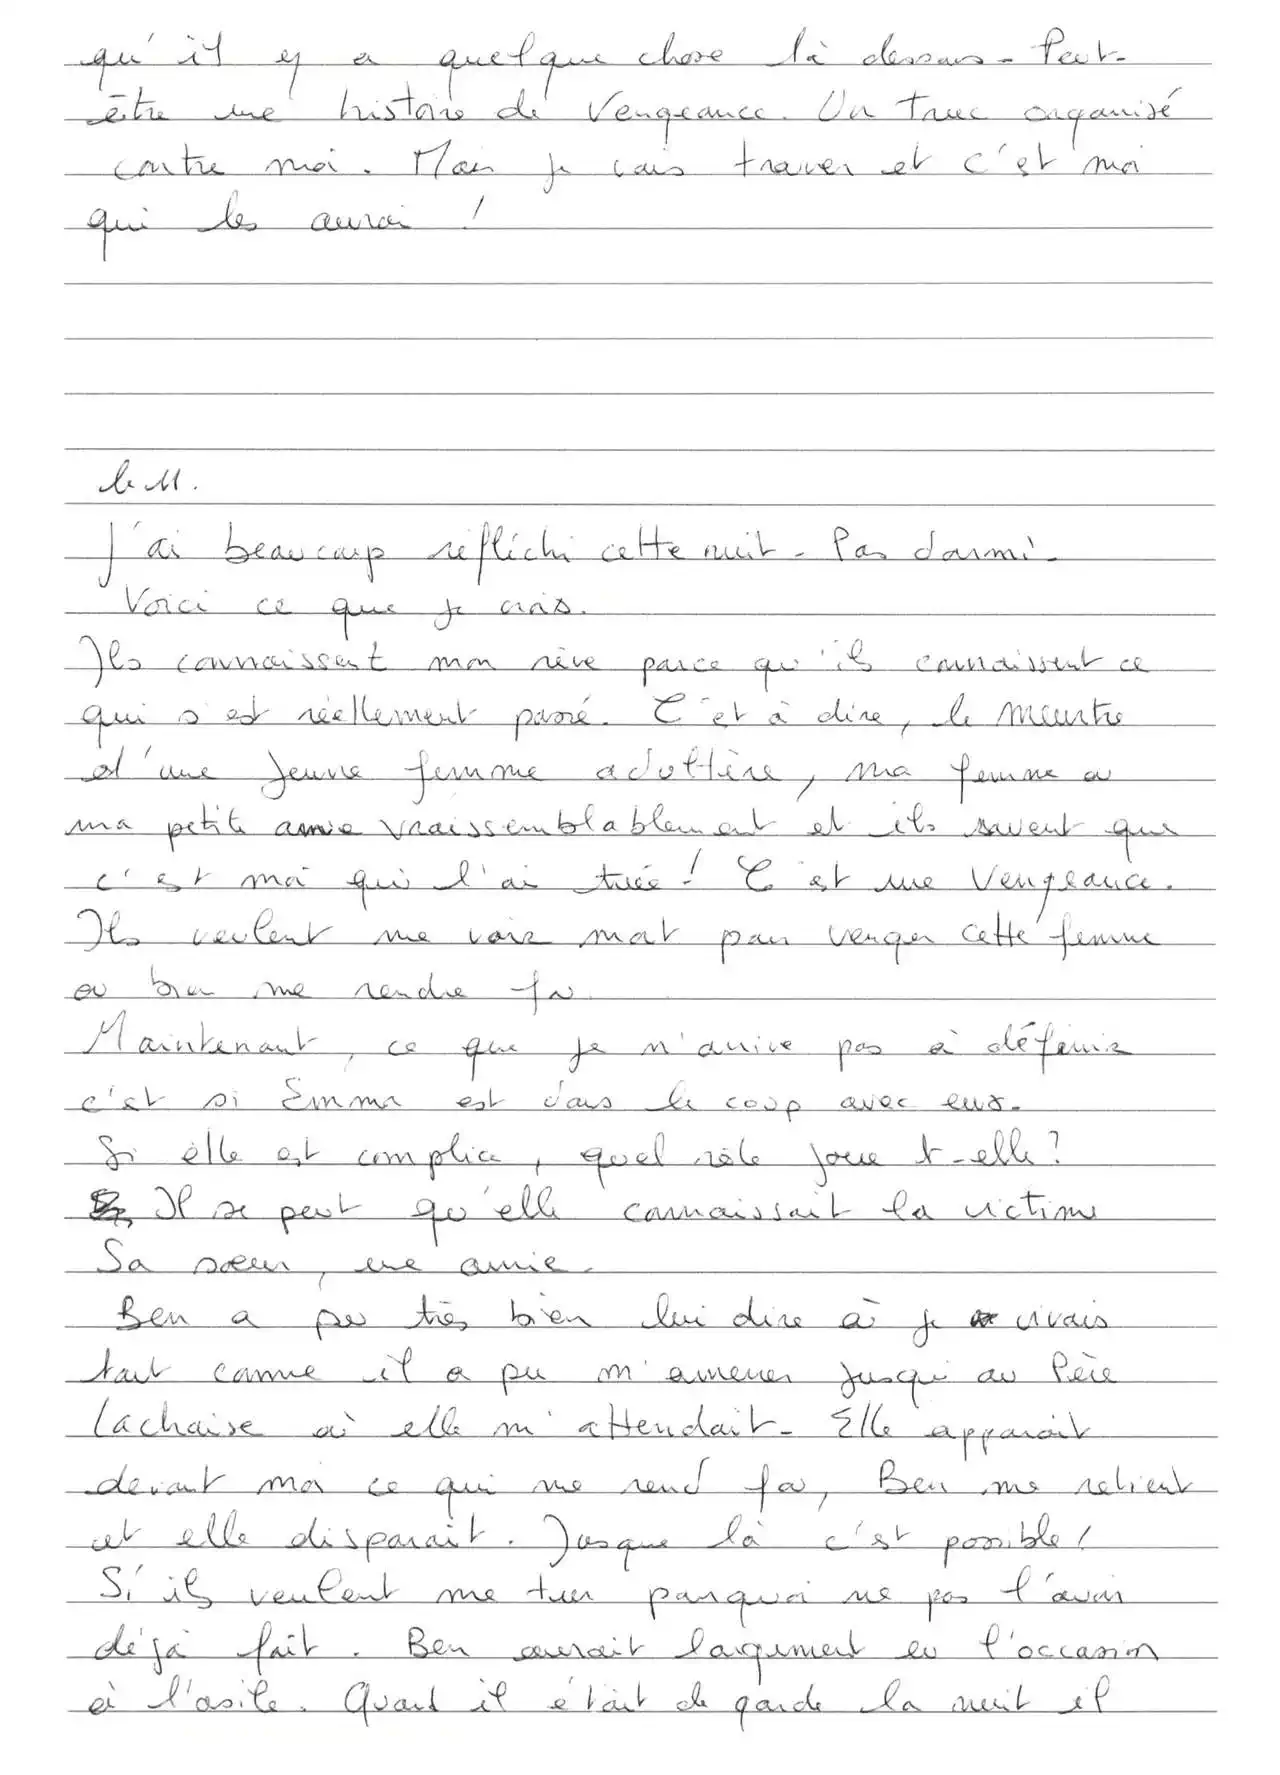 qu'il y a quelque chose là dessous - Peut-
être une histoire de Vengeance. Un truc organisé
contre moi. Mais je vais trouver et c'est moi
qui les aurai !
le 11.
J'ai beaucoup réfléchi cette nuit - Pas dormi -
Voici ce que je crois.
Ils connaissent mon rêve parce qu'ils connaissent ce
qui s'est réellement passé. C'est à dire, le meurtre
d'une jeune femme adultère, ma femme ou
ma petite amie vraissemblablement et ils savent que
c'est moi qui l'ai tuée ! C'est une Vengeance.
Ils veulent me voir mort pour venger cette femme
ou bien me rendre fou
Maintenant, ce que je n'arrive pas à définir
c'est si Emma est dans le coup avec eux.
Si elle est complice, quel rôle joue t-elle ?
Il se peut qu'elle connaissait la victime
Sa sœur, une amie.
Ben a pu très bien lui dire où je vivais
tout comme il a pu m'amener jusqu'au Père
Lachaise où elle m'attendait - Elle apparait
devant moi ce qui me rend fou, Ben me retient
et elle disparait. Jusque là c'est possible !
S'ils veulent me tuer pourquoi ne pas l'avoir
déjà fait. Ben aurait largement eu l'occasion
à l'asile. Quand il était de garde la nuit il